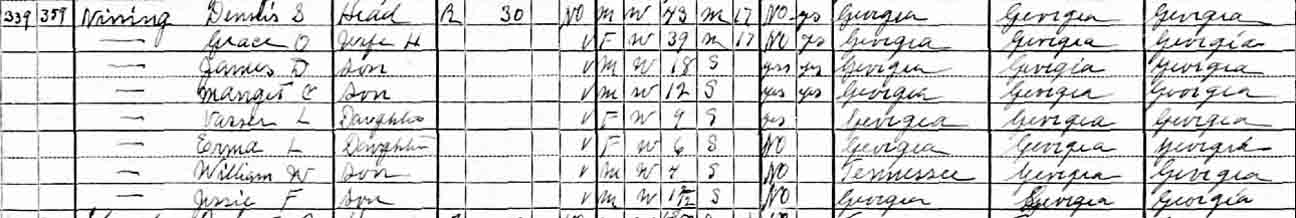 339 359 Nixing Dennis S Head R 30 NO M W 43 M 17 NO yes Georgia Georgia Georgia
— Grace O Wife H V F W 39 M 17 NO yes Georgia Georgia Georgia
— James D Son V M W 18 S yes yes Georgia Georgia Georgia
— Manget C Son V M W 12 S yes yes Georgia Georgia Georgia
— L Daughter V F W 9 S yes Georgia Georgia Georgia
— Erma L Daughter V F W 6 S NO Georgia Georgia Georgia
— William W Son V M W S NO Tennessee Georgia Georgia
— Jessie F Son V M W S NO Georgia Georgia Georgia